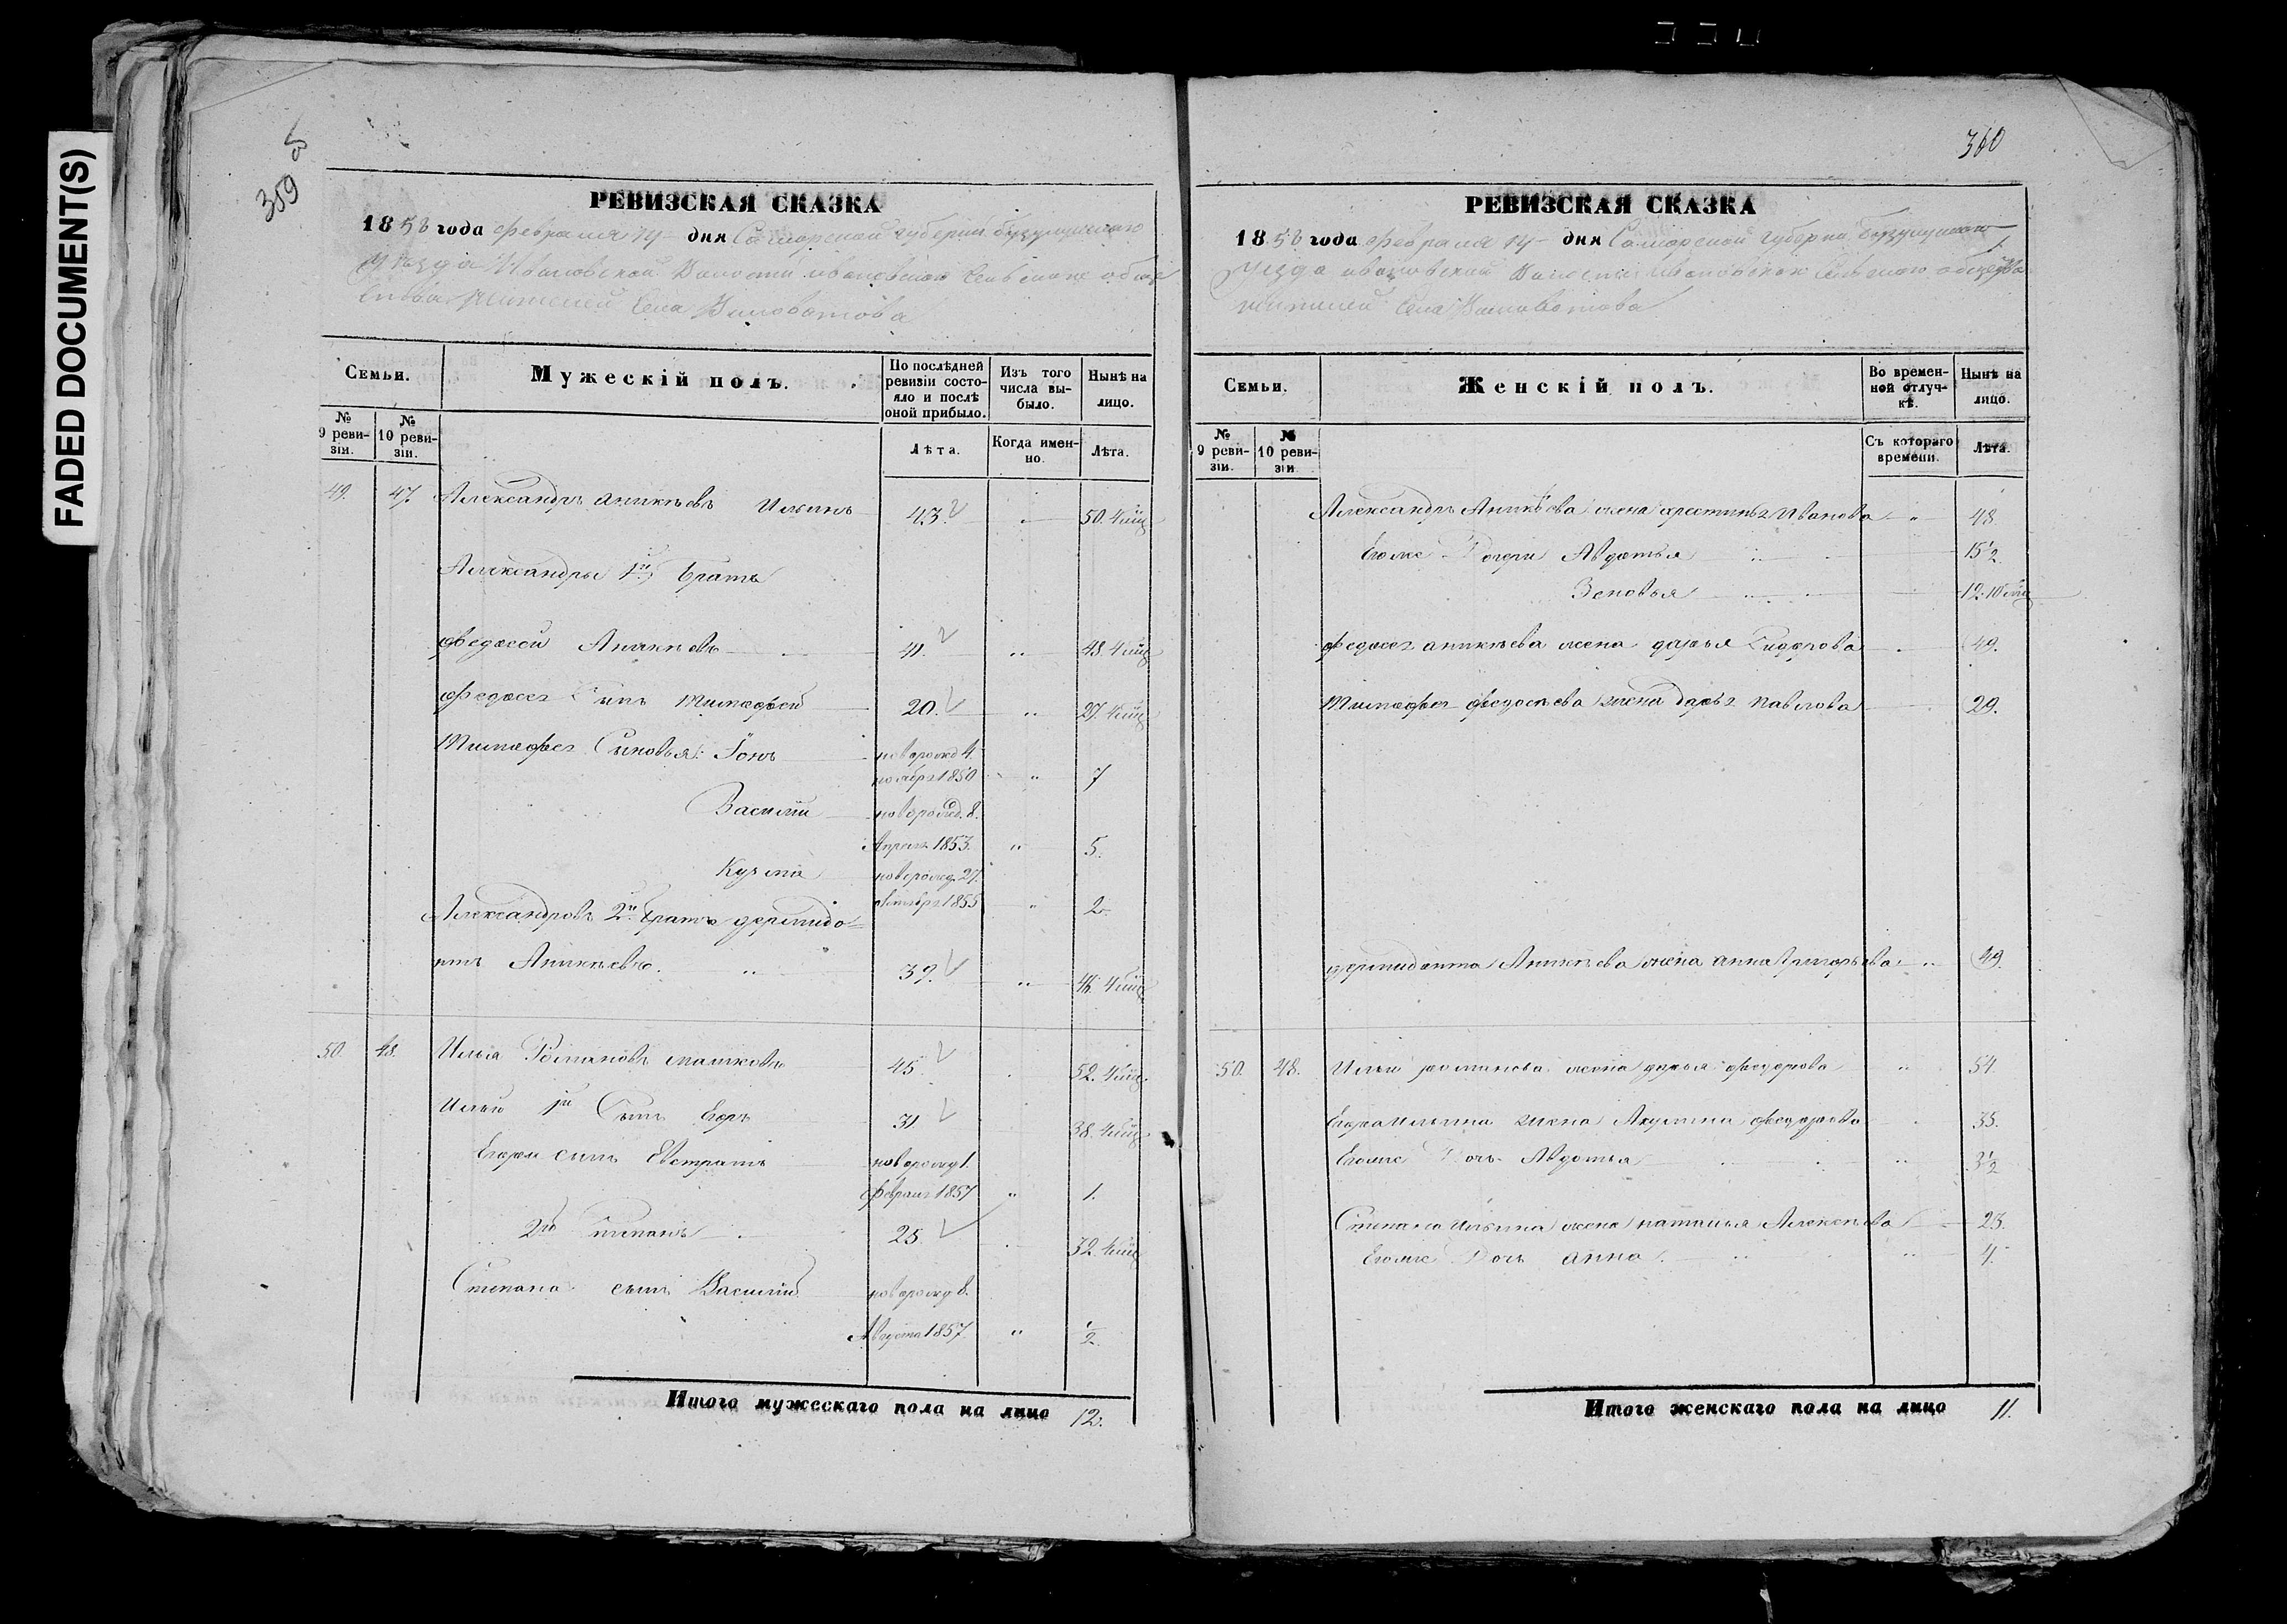 FADED DOCUMENT(S)
359
360
РЕВИЗСКАЯ СКАЗКА
1858 года февраля 14 дня Самарской губернии Бузулускаго
уезда Ивановской Волости Ивановскаго Сельскаго обще
ства жителей Села Виловатова
Семьи.
Мужескій полъ.
По послѣдней ревизіи состояло и послѣ оной прибыло.
Изъ того числа выбыло.
Нынѣ на лицо.
№ 9 ревизіи.
№ 10 ревизіи.
Лѣта.
Когда именно.
Лѣта.
49. 47. Александръ Аникѣевъ Ильинъ 43. „ 50. 4 мѣц
Александры 1й братъ
Федосей Аникѣевъ 41. „ 48. 4 мѣц
Федосея Сынъ Тимофей 20. „ 27. 4 мѣц
Тимофея Сыновья: Іонъ новорожд 4.
ноября 1850 „ 7
Василій новорожд. 8.
Апреля 1853. „ 5.
Кузма новорожд. 27.
октября 1855 „ 2.
Александровъ 2й братъ ферапидо-
нтъ Аникѣевъ. 39. „ 46. 4 мѣц
50. 48. Илья Романовъ Машковъ 45 52. 4 мѣц.
Ильи 1й Сынъ Егоръ 31 38. 4 мѣц
Егора сынъ Евстратъ новорожд 1.
февраля 1857 „ 1.
2й Степанъ 25 32. 4 мѣц
Степана сынъ Василій новорожд 8.
Августа 1857 „ 1/2.
Итого мужескаго пола на лицо 12.
РЕВИЗСКАЯ СКАЗКА
1858 года февраля 14 дня Самарской губерни Бузулускаго
уезда ивановской Волости Ивановскаго Сельскаго общества
жителей Села Виловатова
Семьи.
Женскій полъ.
Во временной отлучкѣ.
Нынѣ на лицо.
№ 9 ревизіи.
№ 10 ревизіи.
Съ котораго времени.
Лѣта.
Александръ Аникѣева жена Христинья Иванова „ 48.
Егоже Дочери Авдотья 15 1/2.
Зеновья 12. 10 мѣц
федосея аникѣева жена дарья Сидорова 49.
Тимофея федосѣева жена дарья Павлова 29.
Аникѣева жена анна Григорьева 49.
50. 48. Ильи романова жена дарья федорова „ 54.
Егора ильина жена Акулина федорова 35.
Егоже Дочь Авдотья „ 3 1/2
Степана ильина жена наталья Алексѣева 23.
Егоже Дочь анна „ 4.
Итого женскаго пола на лицо 11.